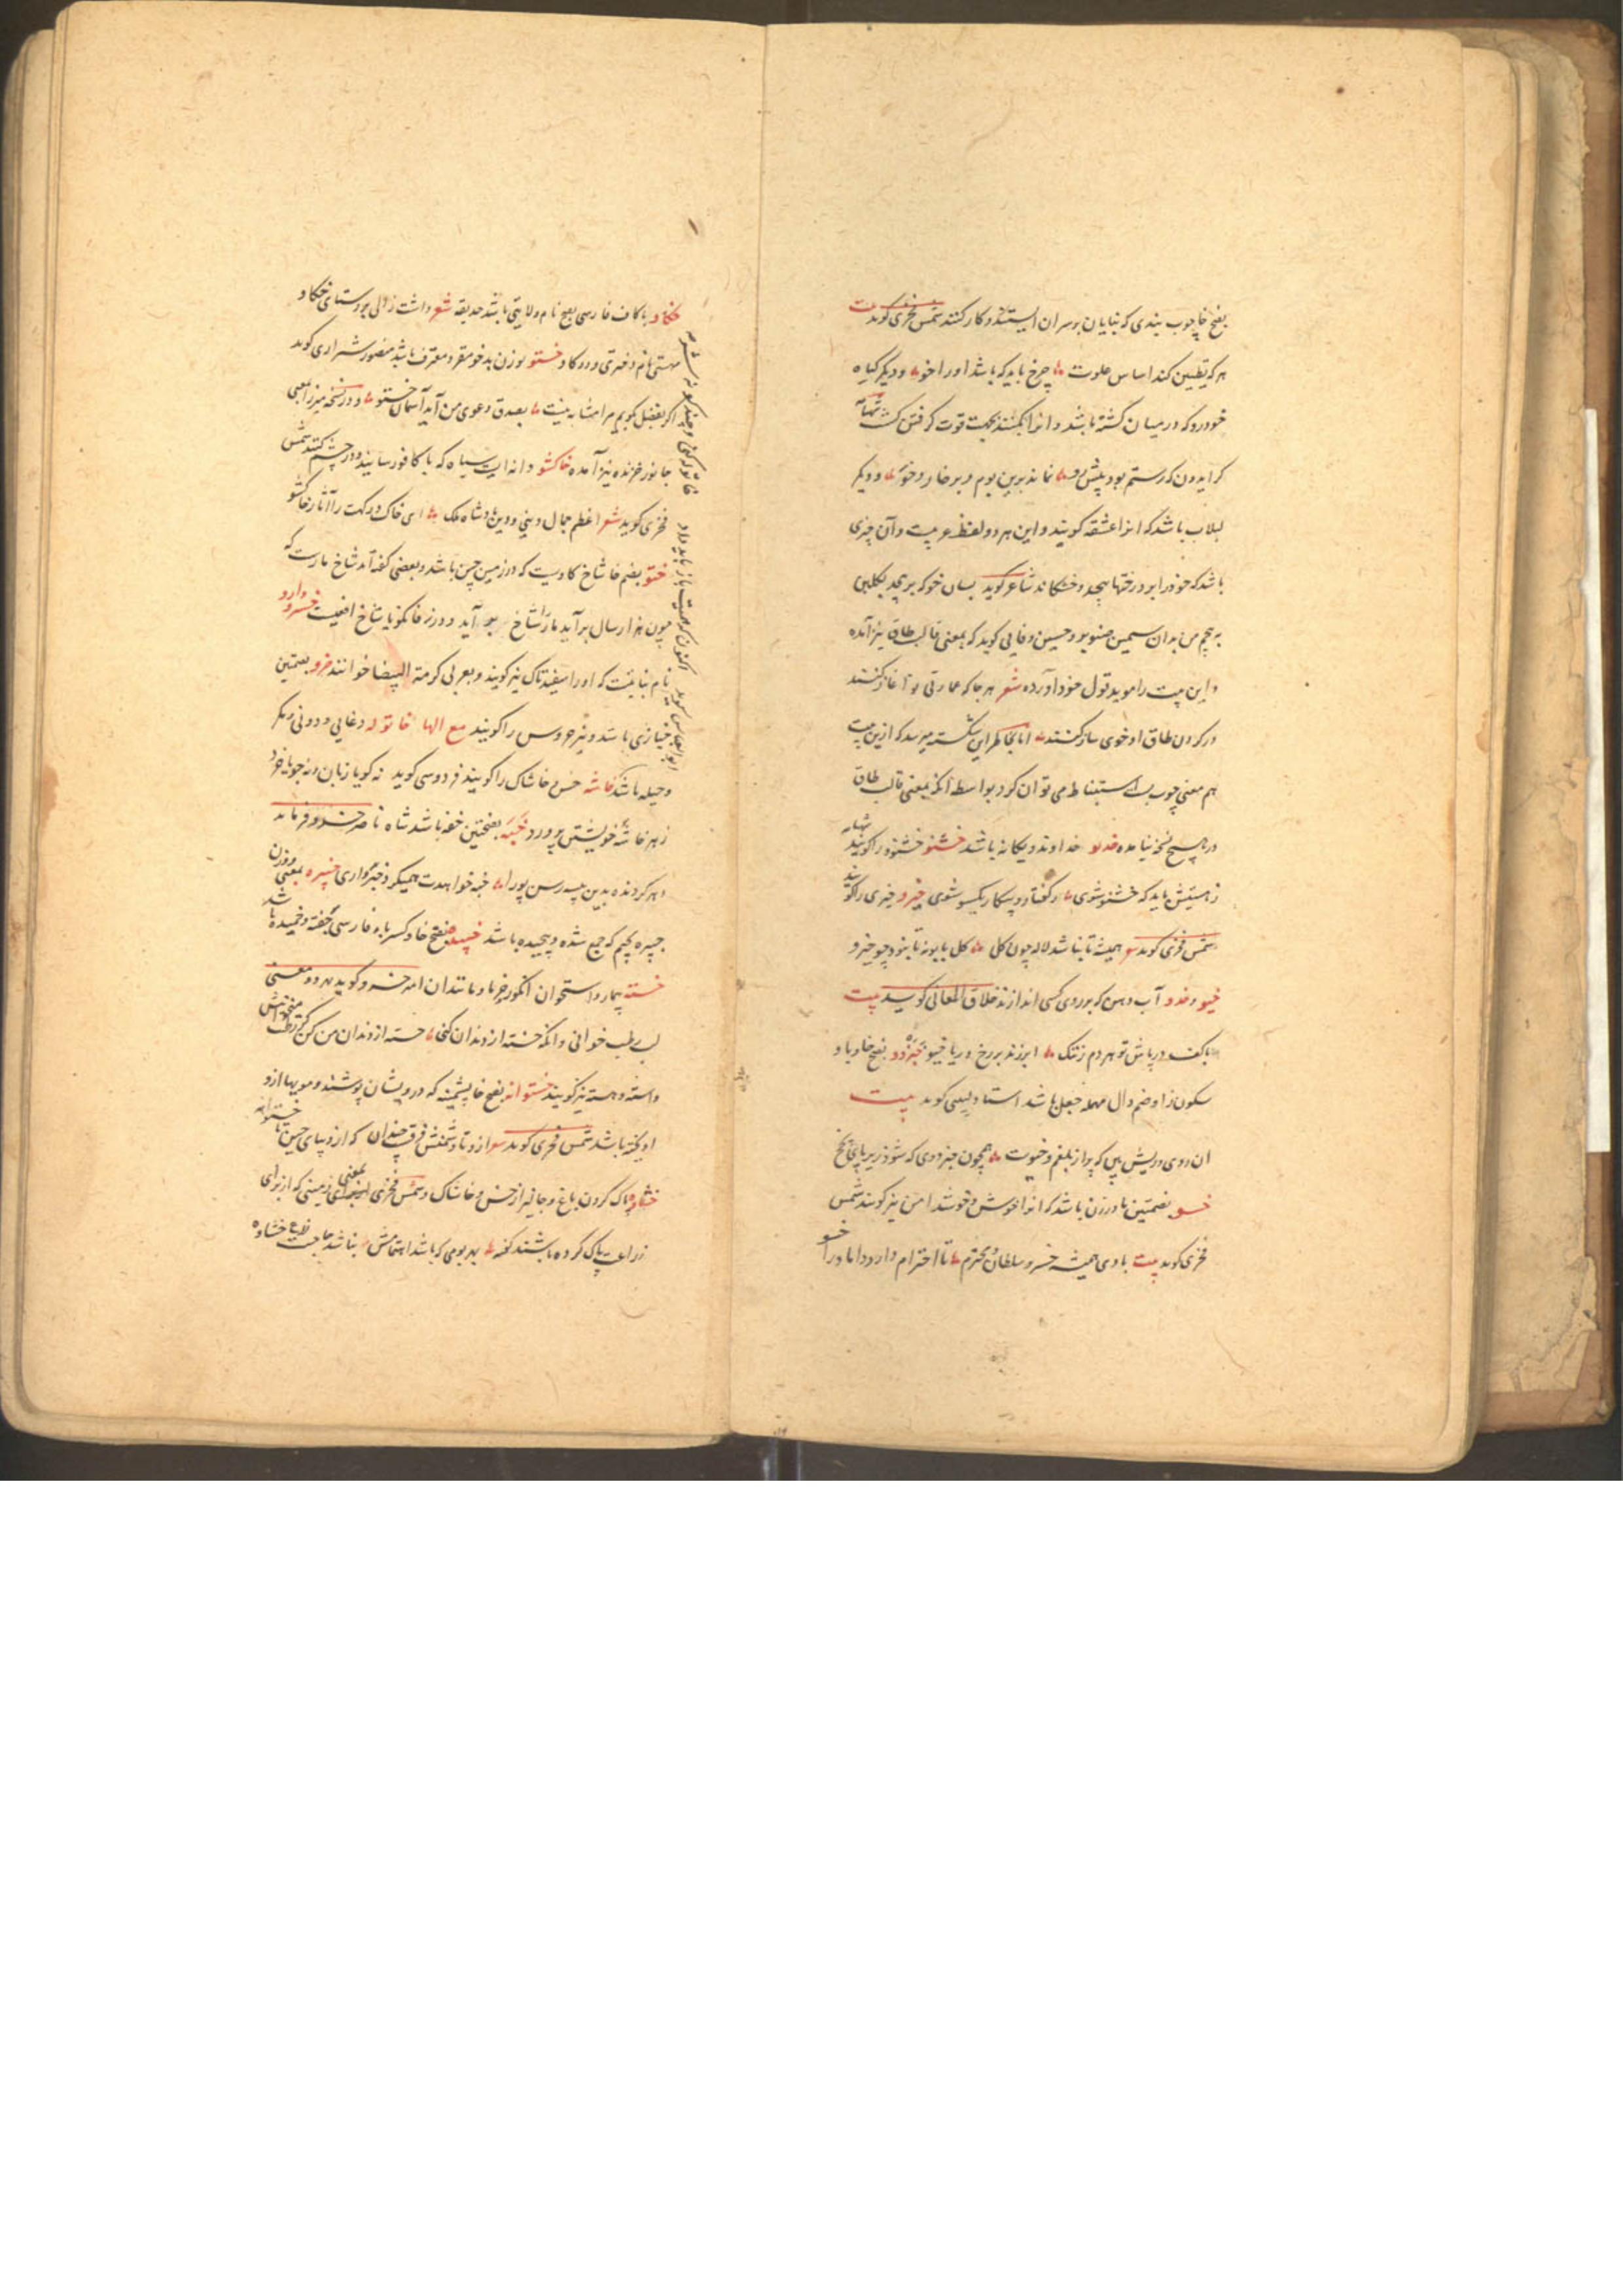 بفتح خا چوب بندی که بنایان بر سر آن ایستند و کار کنند شمس فخری کوید بیت
هر که تطیین کند اساس علوت چرخ باید که باشد او را خو و دیکر کیاه
خودرو که در میان کشته باشد و انرا بکنند بجهت قوت کرفتن کشت
کر ایدون که رستم بود پیش رو نماند برین بوم و بر خار و خو و دیکر
لبلاب باشد که انرا عشقه کویند و این هر دو لفظ عربیت و آن چیزی
باشد که خود را بر درختها پیچد و خشکاند شاعر کوید بسان خو که بر پیچد بکلبن
به پیچم من بدان سیمین صنوبر و حسین وفایی کوید که بمعنی قالب طاق نیز آمده
و این بیت را موید قول خود آورده شعر هر جا که عمارتی نو آغاز کنند
در کردن طاق او خوی ساز کنند اما بخاطر این شکسته میرسد که ازین بیت
هم معنی چوب بست استنباط می توان کرد بواسطه آنکه بمعنی قالب طاق
در هیچ نسخه نیامده خدیو خداوند و یکانه باشد خشنو خشنود را کویند
ز هستیش باید که خشنو شوی ز کفتار و پیکار یکسو شوی خیرو خیری را کویند
شمس فخری کوید همیشه تا نباشد لاله چون کل کل بابونه تا نبود چو خیرو
خیو و خدو آب دهن که بر روی کسی اندازند خلاق المعانی کوید بیت
با کف درپاش تو هر دم ز ننک ابر زند بر رخ دریا خیو خبزدو بفتح خا و با و
سکون زا و ضم دال مهمله جعل باشد استاد لبیبی کوید بیت
ان روی و ریش بین که پر از بلغم و خیوست همچون خبزدوی که شود زیر پای پخ
خسو بضمتین مادر زن باشد که انرا خوش و خوشدامن نیز کویند شمس
فخری کوید بیت بادی همیشه خسرو سلطان محترم تا احترام دارد داماد را خسو
باکاف فارسی بفتح نام ولایتی باشد حدیقه شعر داشت زالی بروستای تکاو
مهستی نام دختری و دو کاو خستو بوزن بدخو مقر و معترف باشد منصور شیرازی کوید
اکر بفضل بکویم مرا مشابه نیست بصدق دعوی من آید آسمان خستو و در نسخه میرزا بمعنی
جانور خزنده نیز آمده خاکشو دانه ایست سیاه که با کافور سایند و در چشم کنند شمس
فخری کوید شعر اعظم جمال دینی و دین پادشاه ملک ای خاک درکهت را آثار خاکشو
ختو بضم خا شاخ کاویست که در زمین چین باشد و بعضی کفته اند شاخ مارست که
چون هزار سال برآید مار را شاخ بر آید و در نسخه یا شاخ افعیست خسرودارو
نام نباتیست که او را سفید تاک نیز کویند و بعربی کرمة البیضا خوانند خرو بضمتین
خبازی باشد و نیز خروس را کویند مع الها خاتوله دغایی و دورنی و مکر
و حیله باشد خاشه خس و خاشاک را کویند فردوسی کوید نه کویا زبان و نه جویا خرد
ز هر خاشه خویشتن پرورد خبه بفتحتین خفه باشد شاه ناصر خسرو فرماید
خبه خواهدت همیکرد خبیره بمعنی و وزن
جبیره بجیم که جمع شده و پیچیده باشد خپیده بفتح خا و کسر باء فارسی کفته و خمیده باشد
خسته بیمار و استخوان انکور و خرما و مانند ان امیر خسرو کوید هر دو معنی
لب رطب خوانی و انکه خسته از دندان کنی خسته از دندان من کن رطب
و استه و هسته نیز کویند خستوانه بفتح خا پشمینه که درویشان پوشند و مویها از و
اویخته باشد شمس فخری کوید از و تا دشمنش فرق چندان که از دیبای چین تا خستوانه
خشاوه پاک کردن باغ و جالیز از خس و خاشاک و شمس فخری بمعنی زمینی که از برای
زراعت پاک کرده باشند کفته بهر بومی که باشد اهتمامش نباشد حاجت خشاوه
خاتوله کنی و چند کونه
اکنون که باز باید داد